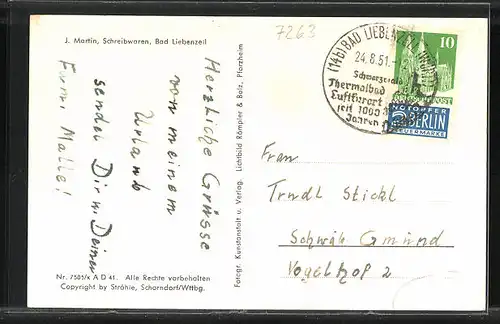 J. Martin, Schreibwaren, Bad Liebenzell
7263
Herzliche Grüsse
von meinem
Urlaub
sendet Dir u. Deinen
Fotogr. Kunstanstalt u. Verlag. Lichtbild Römpler & Bolz, Pforzheim
(14b) BAD LIEBENZELL
24.8.51.
Schwarzwald
Thermalbad
Luftkurort
seit 1000
Jahren
10
NOTOPFER
2 BERLIN
STEUERMARKE
Frau
Trudl Stickl
Schwäb Gmünd
Vogelhof 2
Nr. 7505/x A D 41. Alle Rechte vorbehalten
Copyright by Ströhle, Schorndorf/Wttbg.